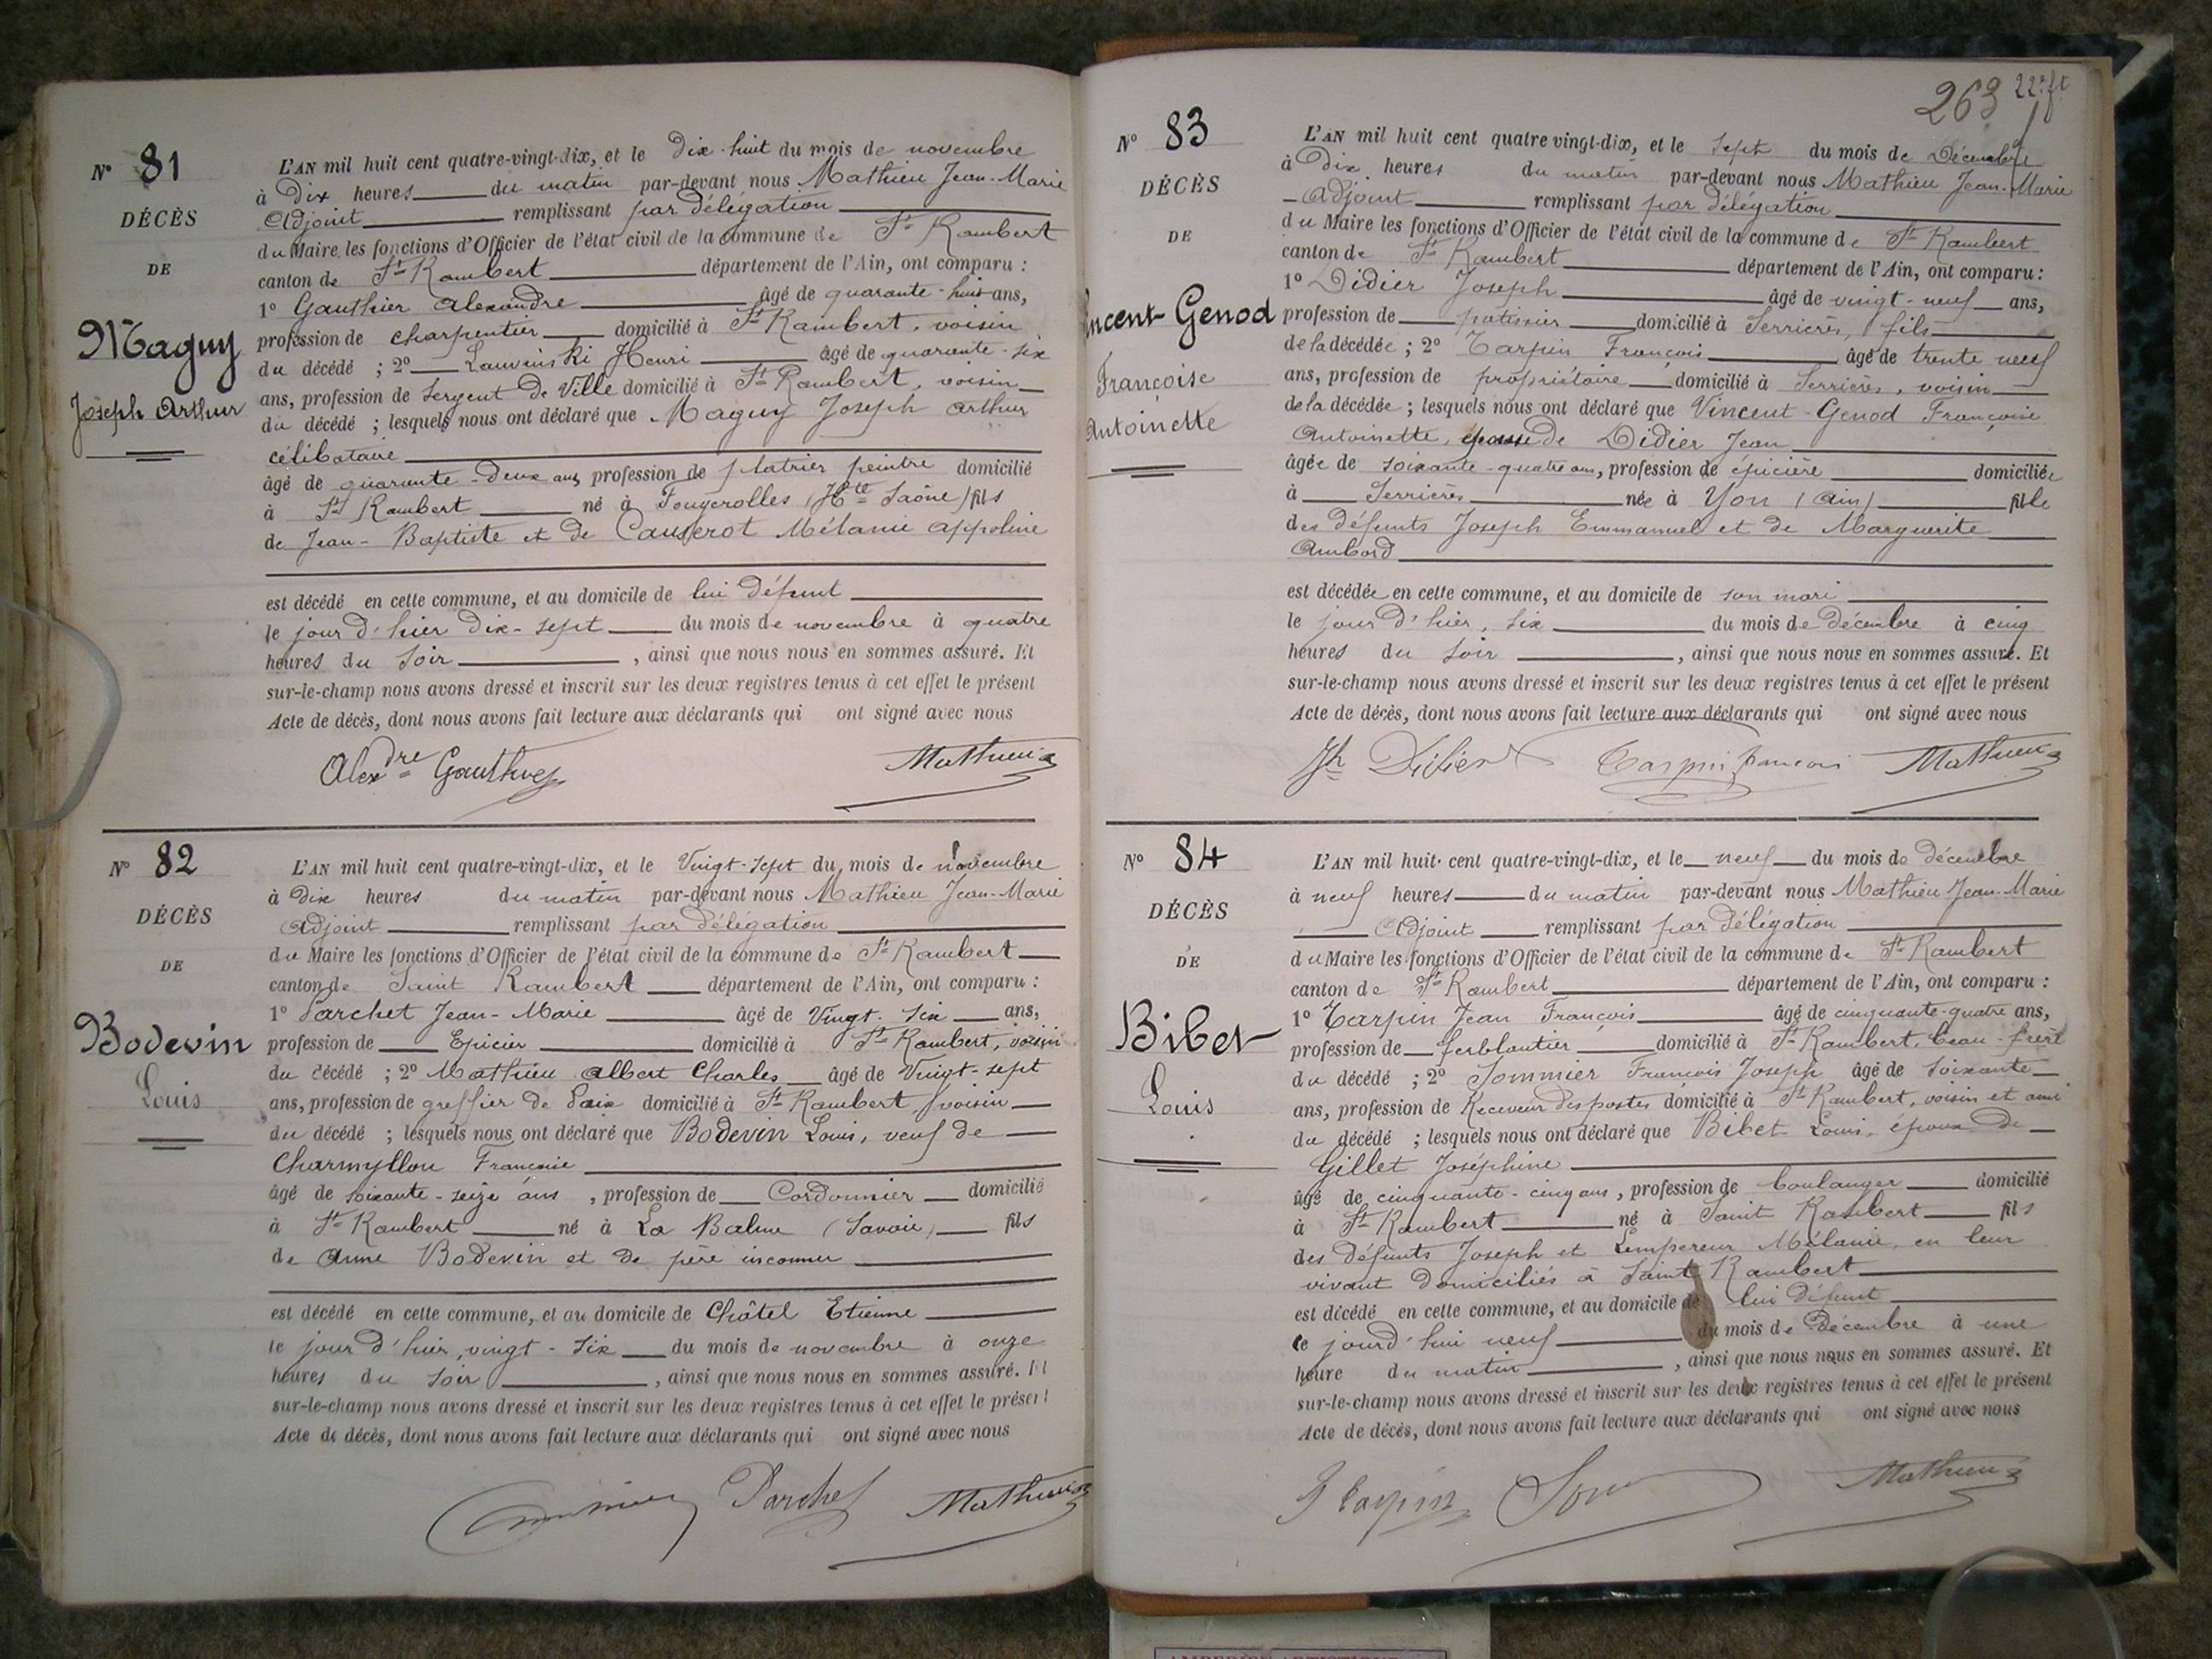 N° 81
DÉCÈS
DE
Maguy
Joseph Arthur
L'AN mil huit cent quatre-vingt-dix, et le Dix-huit du mois de novembre
à Dix heures du matin par-devant nous Mathieu Jean-Marie
Adjoint remplissant par délégation
du Maire les fonctions d'Officier de l'état civil de la commune de St Rambert
canton de St Rambert département de l'Ain, ont comparu :
1° Gauthier Alexandre âgé de quarante-huit ans,
profession de charpentier domicilié à St Rambert, voisin
du décédé ; 2° Henri âgé de quarante-six
ans, profession de Sergent de Ville domicilié à St Rambert, voisin
du décédé ; lesquels nous ont déclaré que Maguy Joseph Arthur
célibataire
âgé de quarante-deux ans profession de platrier peintre domicilié
à St Rambert né à Fougerolles (Hte Saône) fils
de Jean-Baptiste et de Causserot Mélanie Appoline
est décédé en cette commune, et au domicile de lui défunt
le jour d'hier Dix-sept du mois de novembre à quatre
heures du soir , ainsi que nous nous en sommes assuré. Et
sur-le-champ nous avons dressé et inscrit sur les deux registres tenus à cet effet le présent
Acte de décès, dont nous avons fait lecture aux déclarants qui ont signé avec nous
Alexdre Gauthier Mathieu
N° 82
DÉCÈS
DE
Bodevin
Louis
L'AN mil huit cent quatre-vingt-dix, et le Vingt-sept du mois de novembre
à Dix heures du matin par-devant nous Mathieu Jean-Marie
Adjoint remplissant par délégation
du Maire les fonctions d'Officier de l'état civil de la commune de St Rambert
canton de Saint Rambert département de l'Ain, ont comparu :
1° Parchet Jean-Marie âgé de Vingt-six ans,
profession de Epicier domicilié à St Rambert, voisin
du décédé ; 2° Mathieu Albert Charles âgé de Vingt-sept
ans, profession de greffier de Paix domicilié à St Rambert, voisin
du décédé ; lesquels nous ont déclaré que Bodevin Louis, veuf de
Charmyllon Françoise
âgé de soixante-seize ans , profession de Cordonnier domicilié
à St Rambert né à La Balme (Savoie) fils
de Anne Bodevin et de père inconnu
est décédé en cette commune, et au domicile de Châtel Etienne
le jour d'hier, vingt-six du mois de novembre à onze
heures du soir , ainsi que nous nous en sommes assuré. Et
sur-le-champ nous avons dressé et inscrit sur les deux registres tenus à cet effet le présent
Acte de décès, dont nous avons fait lecture aux déclarants qui ont signé avec nous
Parchet Mathieu
263 22e ft
N° 83
DÉCÈS
DE
incent-Genod
Françoise
Antoinette
L'AN mil huit cent quatre vingt-dix, et le sept du mois de Décembre
à Dix heures du matin par-devant nous Mathieu Jean-Marie
Adjoint remplissant par délégation
du Maire les fonctions d'Officier de l'état civil de la commune de St Rambert
canton de St Rambert département de l'Ain, ont comparu :
1° Didier Joseph âgé de vingt-neuf ans,
profession de patissier domicilié à Serrières, fils
de la décédée ; 2° Tarpin François âgé de trente neuf
ans, profession de propriétaire domicilié à Serrières, voisin
de la décédée ; lesquels nous ont déclaré que Vincent-Genod Françoise
Antoinette, épouse de Didier Jean
âgée de soixante-quatre ans, profession de épicière domiciliée
à Serrières née à Yon (Ain) fille
des défunts Joseph Emmanuel et de Marguerite
Ambord
est décédée en cette commune, et au domicile de son mari
le jour d'hier, six du mois de décembre à cinq
heures du soir , ainsi que nous nous en sommes assuré. Et
sur-le-champ nous avons dressé et inscrit sur les deux registres tenus à cet effet le présent
Acte de décès, dont nous avons fait lecture aux déclarants qui ont signé avec nous
Jh Didier Tarpin françois Mathieu
N° 84
DÉCÈS
DE
Bibet
Louis
L'AN mil huit cent quatre-vingt-dix, et le neuf du mois de décembre
à neuf heures du matin par-devant nous Mathieu Jean-Marie
Adjoint remplissant par délégation
du Maire les fonctions d'Officier de l'état civil de la commune de St Rambert
canton de St Rambert département de l'Ain, ont comparu :
1° Tarpin Jean François âgé de cinquante-quatre ans,
profession de ferblantier domicilié à St Rambert, beau-frère
du décédé ; 2° Sommier François Joseph âgé de soixante
ans, profession de Receveur des postes domicilié à St Rambert, voisin et ami
du décédé ; lesquels nous ont déclaré que Bibet Louis, époux de
Gillet Joséphine
âgé de cinquante-cinq ans, profession de boulanger domicilié
à St Rambert né à Saint Rambert fils
des défunts Joseph et Lempereur Mélanie, en leur
vivant domiciliés à Saint Rambert
est décédé en cette commune, et au domicile de lui défunt
ce jourd'hui neuf du mois de Décembre à une
heure du matin , ainsi que nous nous en sommes assuré. Et
sur-le-champ nous avons dressé et inscrit sur les deux registres tenus à cet effet le présent
Acte de décès, dont nous avons fait lecture aux déclarants qui ont signé avec nous
Tarpin Mathieu